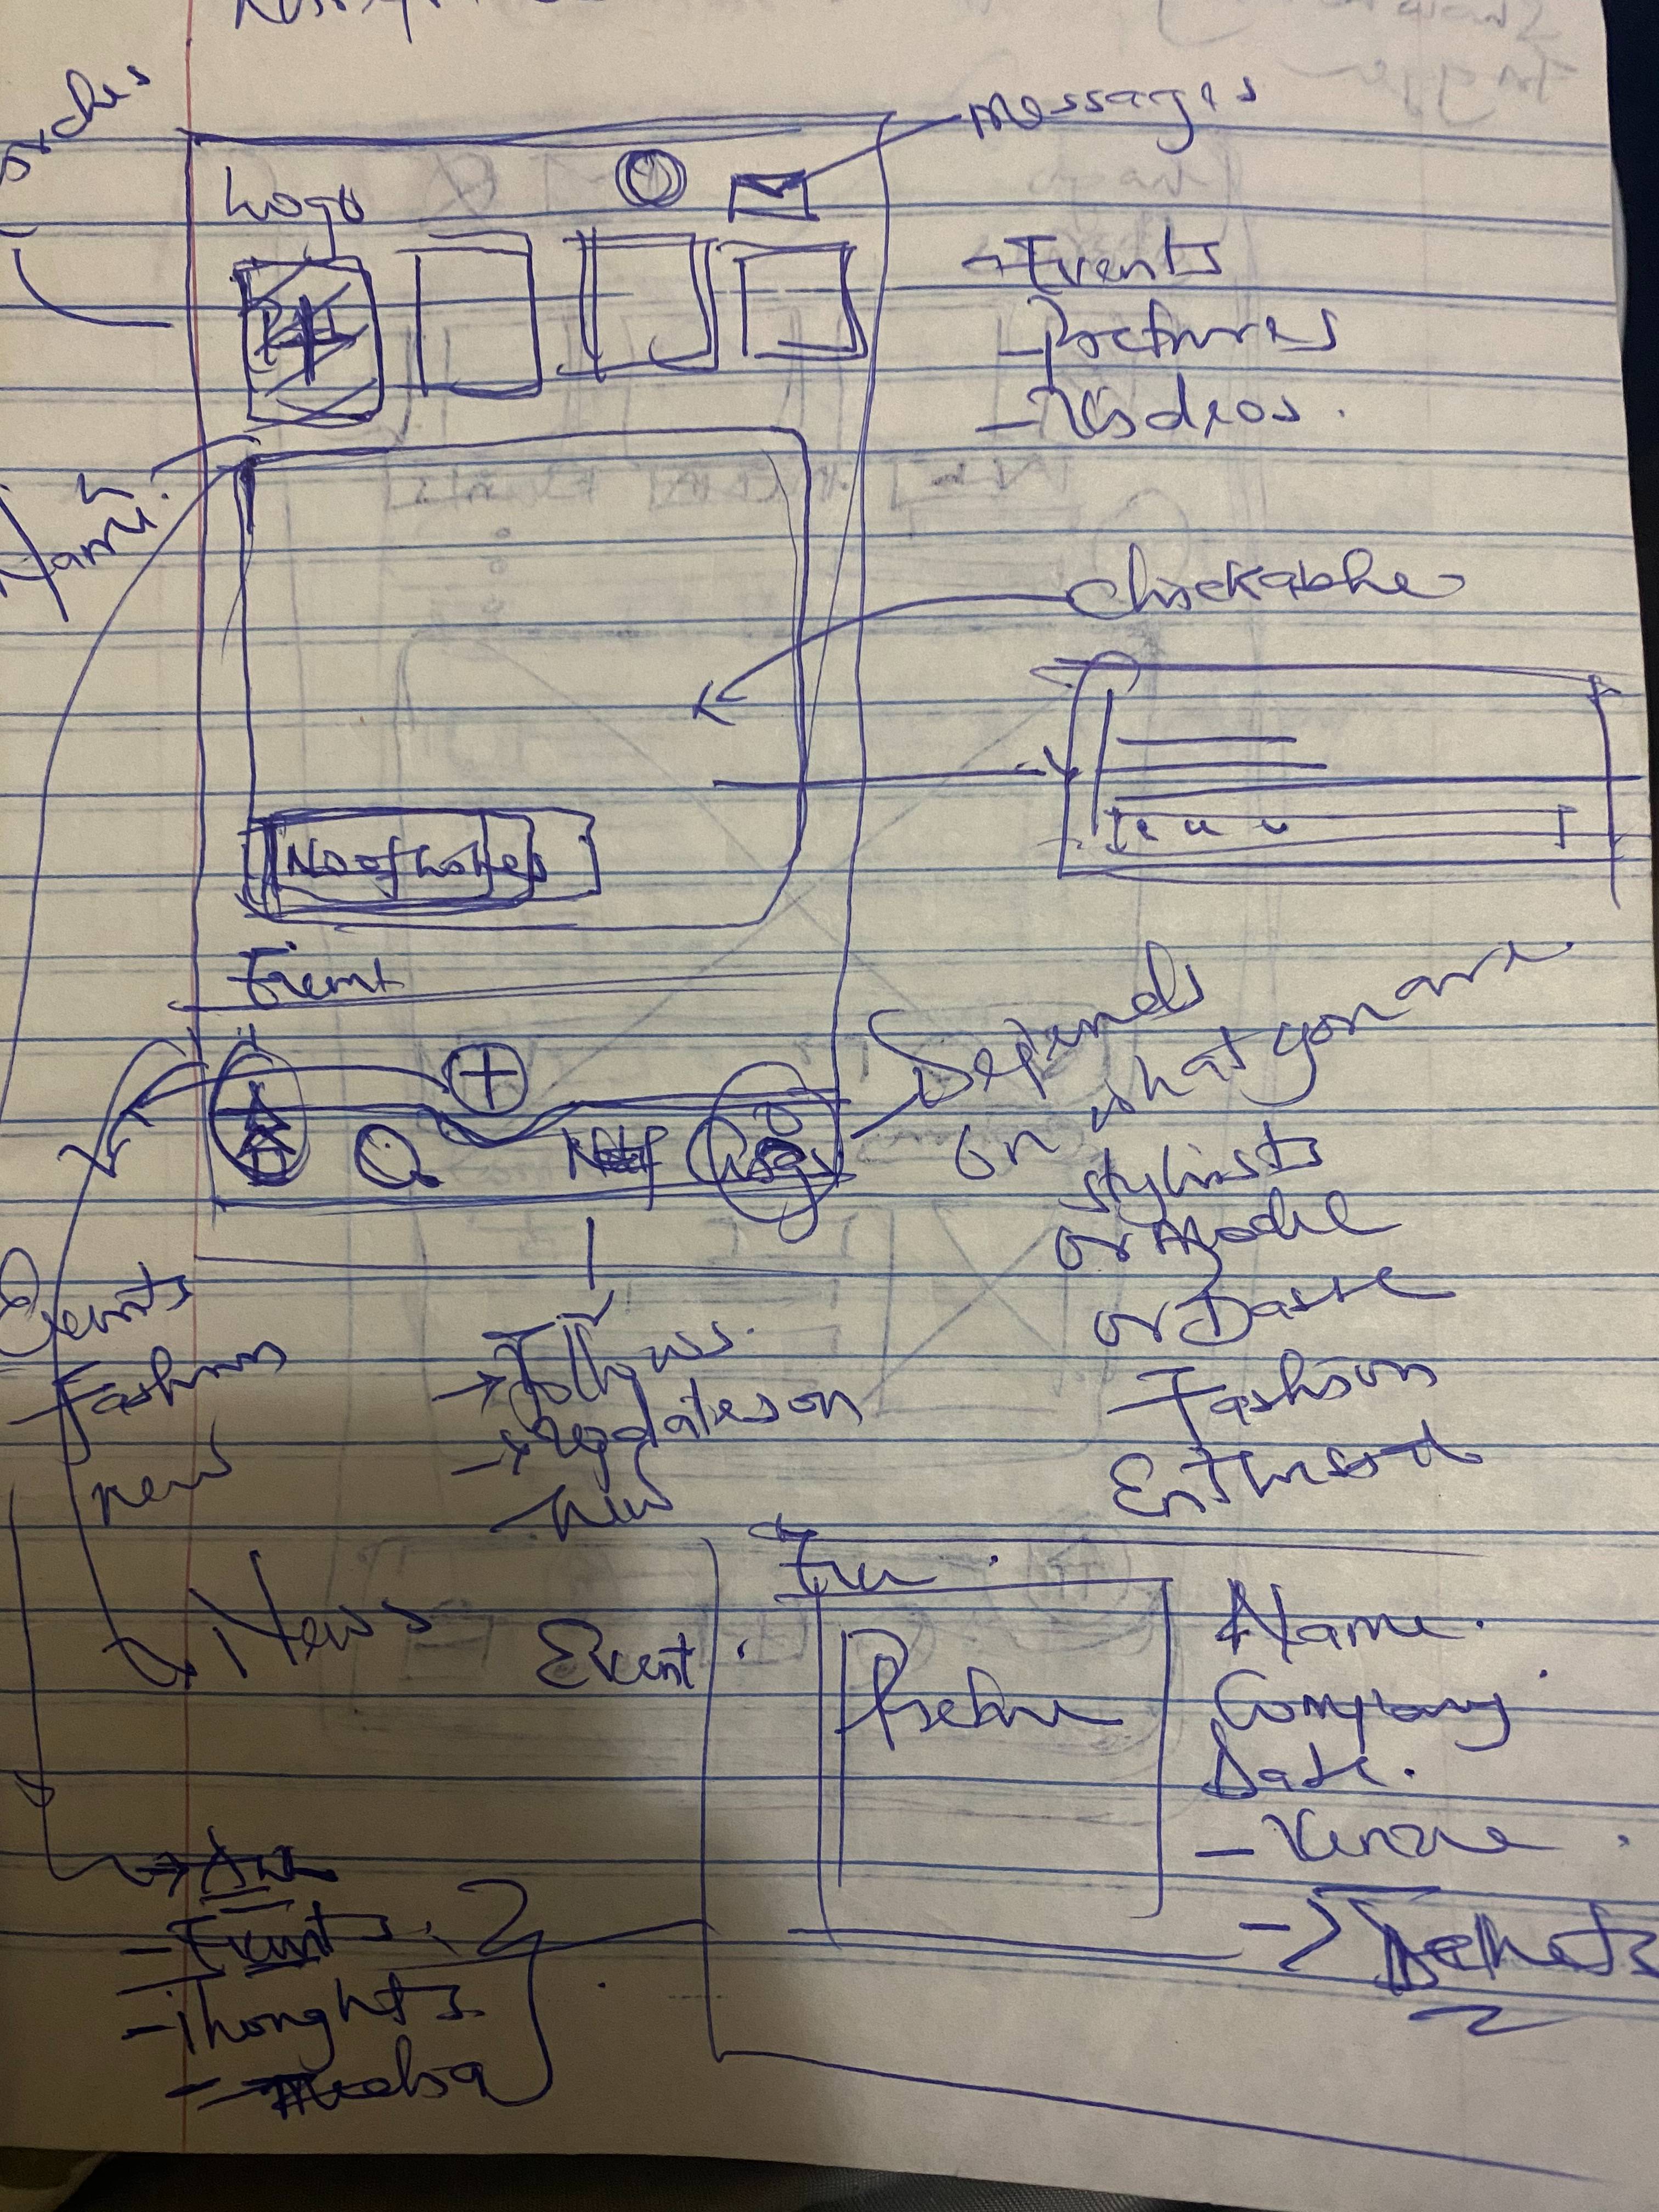 messages
Logo
- Events
- Pictures
- Videos.
Name
clickable
No of Likes
Event
Depends
on what you are
stylists
or Model
or
Fashion
Enthusiast
Events
Fashion
news
→ follows.
→ updates on
News
Event.
Picture
Name.
Company
Date.
- Venue
- Events
- Thoughts
- Media